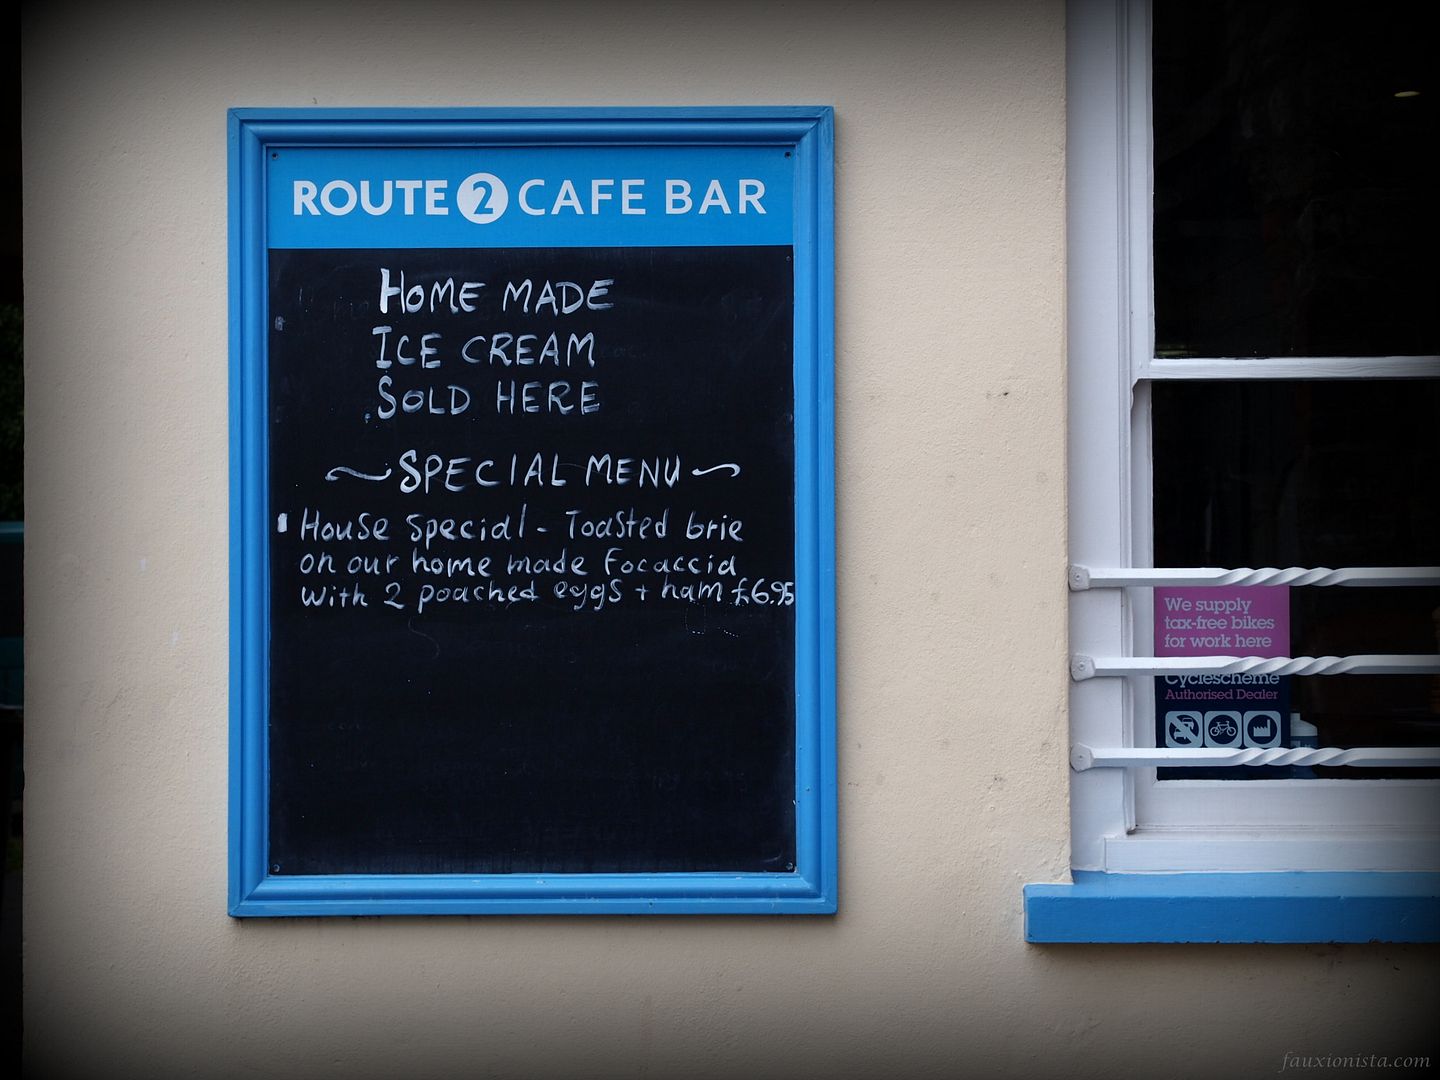 ROUTE 2 CAFE BAR
HOME MADE
ICE CREAM
SOLD HERE
SPECIAL MENU
House Special - Toasted brie
on our home made Focaccia
with 2 poached eggs + ham £6.95
We supply
tax-free bikes
for work here
Cyclescheme
Authorised Dealer
fauxionista.com